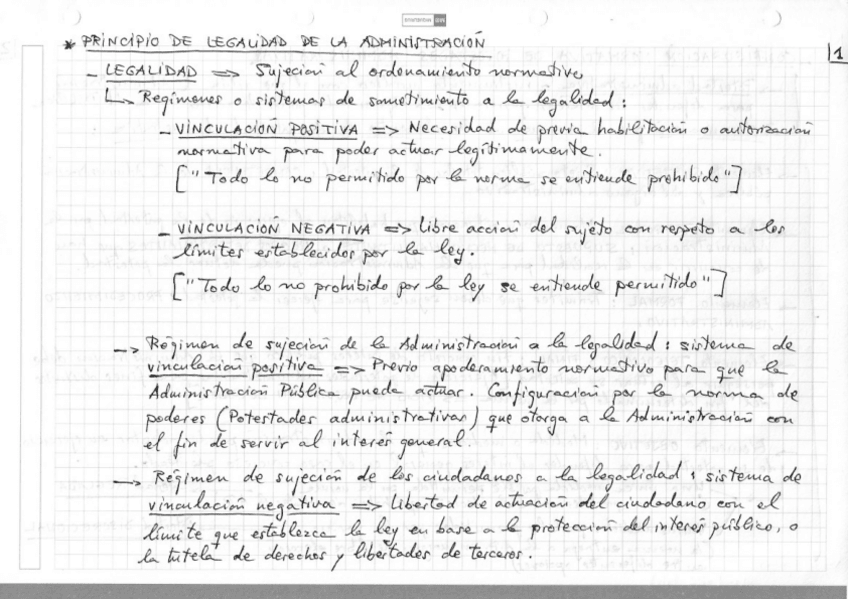 * PRINCIPIO DE LEGALIDAD DE LA ADMINISTRACIÓN
1
- LEGALIDAD => Sujeción al ordenamiento normativo
↳ Regímenes o sistemas de sometimiento a la legalidad:
- VINCULACIÓN POSITIVA => Necesidad de previa habilitación o autorización
normativa para poder actuar legítimamente.
["Todo lo no permitido por la norma se entiende prohibido"]
- VINCULACIÓN NEGATIVA => Libre acción del sujeto con respeto a los
límites establecidos por la ley.
["Todo lo no prohibido por la ley se entiende permitido"]
-> Régimen de sujeción de la Administración a la legalidad: sistema de
vinculación positiva => Previo apoderamiento normativo para que la
Administración Pública pueda actuar. Configuración por la norma de
poderes (Potestades administrativas) que otorga a la Administración con
el fin de servir al interés general.
-> Régimen de sujeción de los ciudadanos a la legalidad: sistema de
vinculación negativa => Libertad de actuación del ciudadano con el
límite que establezca la ley en base a la protección del interés público, o
la tutela de derechos y libertades de terceros.